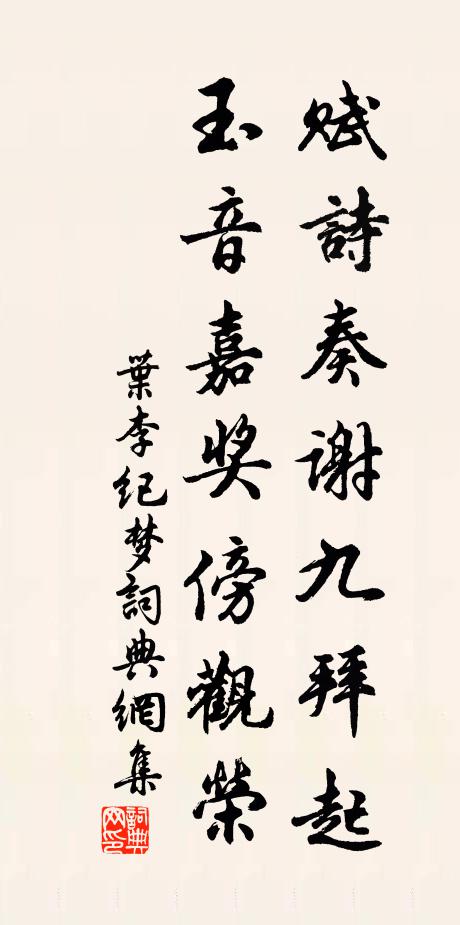 賦詩奏謝九拜起
玉音嘉奖傍觀榮
葉李纪梦詞典網集
詞典网印